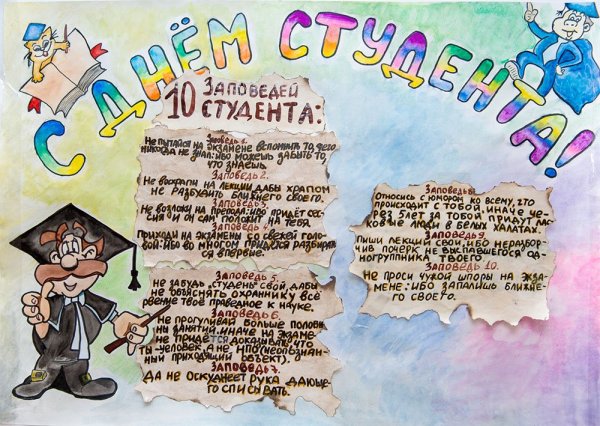 С ДНЁМ СТУДЕНТА!
10 ЗАПОВЕДЕЙ
СТУДЕНТА:
ЗАПОВЕДЬ 1.
НЕ ПЫТАЙСЯ НА ЭКЗАМЕНЕ ВСПОМНИТЬ ТО, ЧЕГО
НИКОГДА НЕ ЗНАЛ: ИБО МОЖЕШЬ ЗАБЫТЬ ТО,
ЧТО ЗНАЕШЬ.
ЗАПОВЕДЬ 2.
НЕ ВОСХРАПИ НА ЛЕКЦИИ ДАБЫ ХРАПОМ
НЕ РАЗБУДИТЬ БЛИЖНЕГО СВОЕГО.
ЗАПОВЕДЬ 3.
НЕ ВОЗЛОЖИ НА ПРЕПОДА: ИБО ПРИДЁТ СЕС-
СИЯ И ОН САМ ПОЛОЖИТ НА ТЕБЯ.
ЗАПОВЕДЬ 4.
ПРИХОДИ НА ЭКЗАМЕНЫ СО СВЕЖЕЙ ГОЛО-
ВОЙ: ИБО ВО МНОГОМ ПРИДЁТСЯ РАЗБИРАТЬ-
СЯ ВПЕРВЫЕ.
ЗАПОВЕДЬ 5.
НЕ ЗАБУДЬ, СТУДЕНЬ СВОЙ, ДАБЫ
НЕ ОБЪЯСНЯТЬ ОХРАННИКУ ВСЁ
РВЕНИЕ ТВОЁ ПРАВЕДНОЕ К НАУКЕ.
ЗАПОВЕДЬ 6.
НЕ ПРОГУЛИВАЙ БОЛЬШЕ ПОЛОВИ-
НЫ ЗАНЯТИЙ, ИНАЧЕ НА ЭКЗАМЕ-
НЕ ПРИДЁТСЯ ДОКАЗЫВАТЬ, ЧТО
ТЫ-ЧЕЛОВЕК, А НЕ НПО (НЕОПОЗНАН-
НЫЙ ПРИХОДЯЩИЙ ОБЪЕКТ).
ЗАПОВЕДЬ 7.
ДА НЕ ОСКУДНЕЕТ РУКА ДАЮЩЕ-
ГО СПИСЫВАТЬ.
ЗАПОВЕДЬ 8.
ОТНОСИСЬ С ЮМОРОМ КО ВСЕМУ, ЧТО
ПРОИСХОДИТ С ТОБОЙ, ИНАЧЕ ЧЕ-
РЕЗ 5 ЛЕТ ЗА ТОБОЙ ПРИДУТ ЛА-
СКОВЫЕ ЛЮДИ В БЕЛЫХ ХАЛАТАХ.
ЗАПОВЕДЬ 9.
ПИШИ ЛЕКЦИИ СВОИ, ИБО НЕРАЗБОР-
ЧИВ ПОЧЕРК НЕ ВЫСПАВШЕГОСЯ ОД-
НОГРУППНИКА ТВОЕГО.
ЗАПОВЕДЬ 10.
НЕ ПРОСИ ЧУЖОЙ ШПОРЫ НА ЭКЗА-
МЕНЕ: ИБО ЗАПАЛИШЬ БЛИЖНЕ-
ГО СВОЕГО.